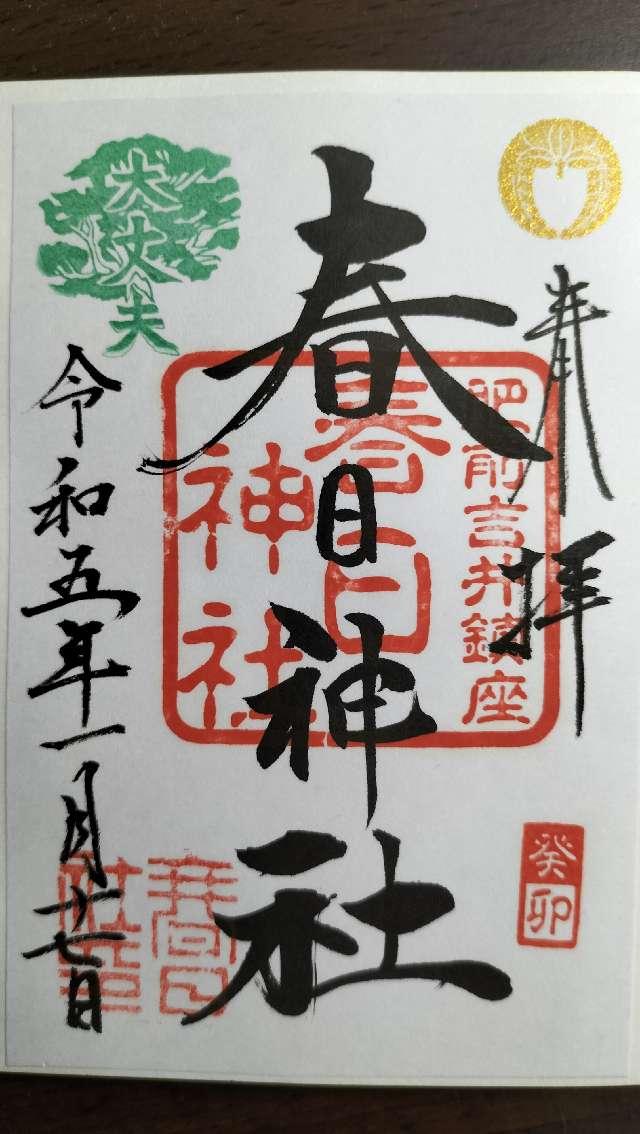 奉拝
肥前吉井鎮座
春日神社
春日
神社
癸卯
大丈夫
令和五年一月廿七日
春日
社印